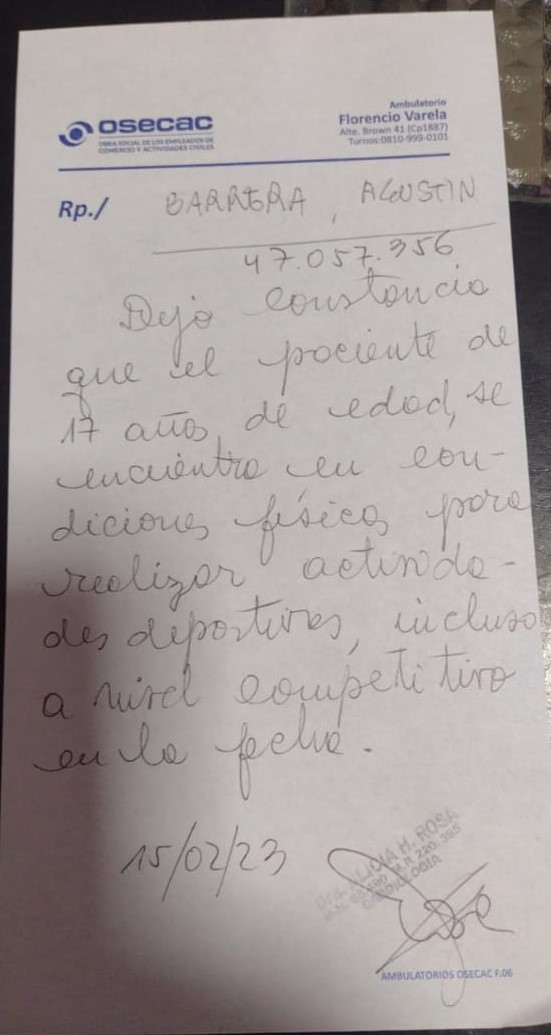 osecac
OBRA SOCIAL DE LOS EMPLEADOS DE
COMERCIO Y ACTIVIDADES CIVILES
Ambulatorio
Florencio Varela
Alte. Brown 41 (Cp1887)
Turnos:0810-999-0101
Rp./ BARRERA, AGUSTIN
47.057.356
Dejo constancia
que el paciente de
17 años de edad, se
encuentra en con-
diciones físicas para
realizar activida-
des deportivas, incluso
a nivel competitivo
en la fecha.
15/02/23
Dra. ALICIA H. ROSA
M.P. 220.395
CARDIOLOGIA
AMBULATORIOS OSECAC F.06